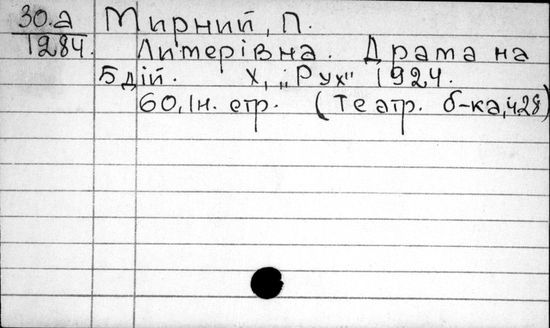 30.а Мирний, П.
1284. Лимерівна. Драма на
5 дій. Х, „Рух" 1924.
60, Ін. стр. (Театр. б-ка, 428)